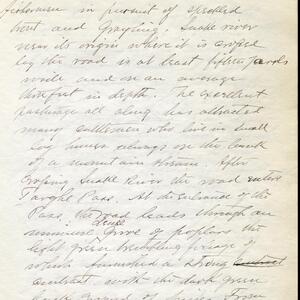 fishermen in pursuit of speckled
trout and Grayling. Snake river
near its origin where it is crossed
by the road is at least fifteen yards
wide and on an average
feet in depth. The excellent
pasturage all along has attracted
many settlemen who live in small
log houses always on the bank
of a mountain stream. After
crossing Snake River the road enters
Targhe Pass. At the entrance of the
Pass, the road leads through an
immense Grove of poplars the
light green trembling foliage of
which furnished a strong contrast
contrast with the dark green